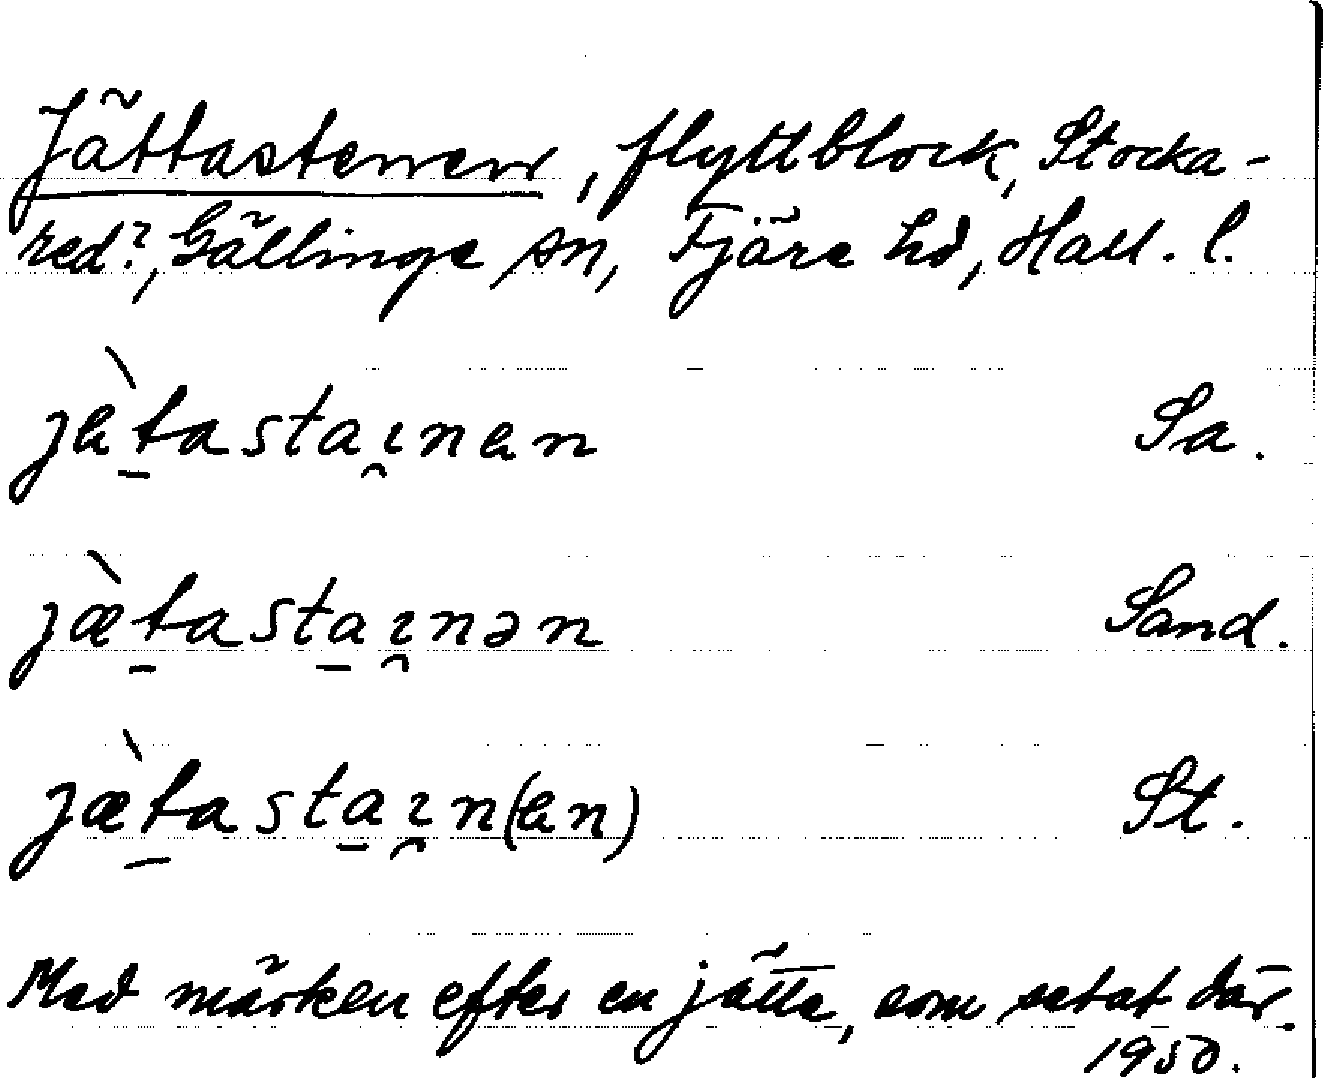 Jättastenen, flyttblock, Stocka-
red?, Gällinge sn, Fjäre hd, Hall. l.
jàtastaı̯nan Sa.
jæ̀tastaı̯nən Sand.
jæ̀tastaı̯n(an) St.
Med märken efter en jätte, som setat där.
1950.